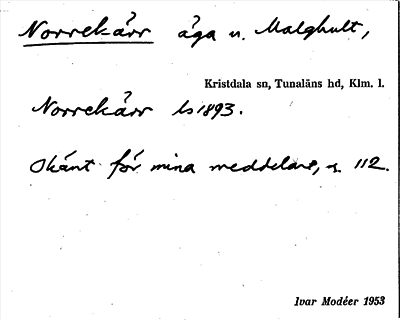 Norrekärr äga u. Malghult,
Kristdala sn, Tunaläns hd, Klm. l.
Norrekärr ls 1893.
Okänt för mina meddelare, s. 112.
Ivar Modéer 1953